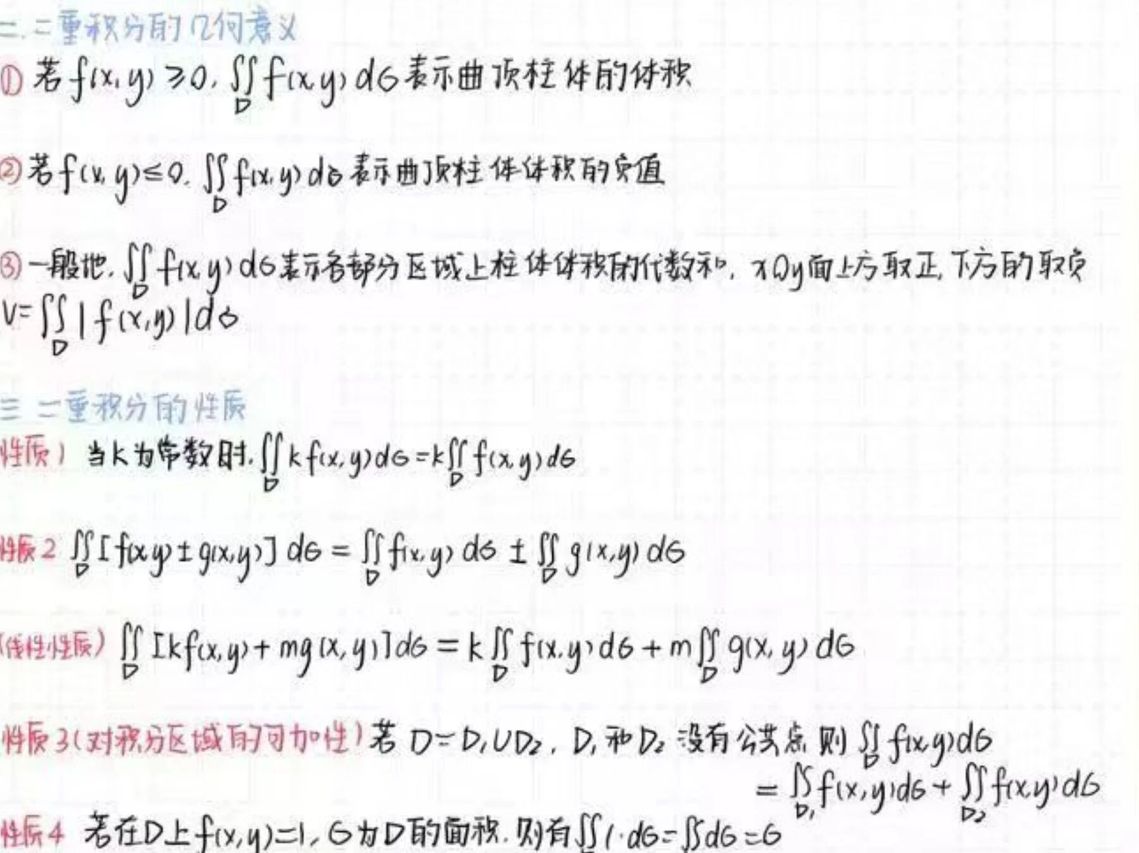 二.二重积分的几何意义
① 若f(x,y)≥0, ∬_D f(x,y)dσ表示曲顶柱体的体积
② 若f(x,y)≤0. ∬_D f(x,y)dσ表示曲顶柱体体积的负值
③ 一般地, ∬_D f(x,y)dσ表示各部分区域上柱体体积的代数和, xOy面上方取正,下方的取负
V=∬_D |f(x,y)|dσ
三 二重积分的性质
性质1 当k为常数时, ∬_D kf(x,y)dσ=k∬_D f(x,y)dσ
性质2 ∬_D [f(x,y)±g(x,y)]dσ = ∬_D f(x,y)dσ ± ∬_D g(x,y)dσ
(线性性质) ∬_D [kf(x,y)+mg(x,y)]dσ = k∬_D f(x,y)dσ + m∬_D g(x,y)dσ
性质3(对积分区域的可加性) 若D=D₁∪D₂, D₁和D₂没有公共点 则∬_D f(x,y)dσ
= ∬_D₁ f(x,y)dσ + ∬_D₂ f(x,y)dσ
性质4 若在D上f(x,y)=1, σ为D的面积, 则有∬1·dσ=∬dσ=σ